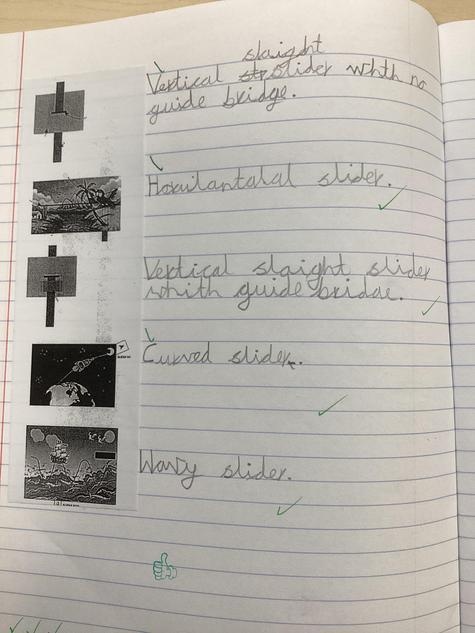 slaight
Vertical str slider whth no
guide bridge.
Horilantalal slider.
Vertical slaight slider
whith guide bridge.
Curved slider.
Wavy slider.